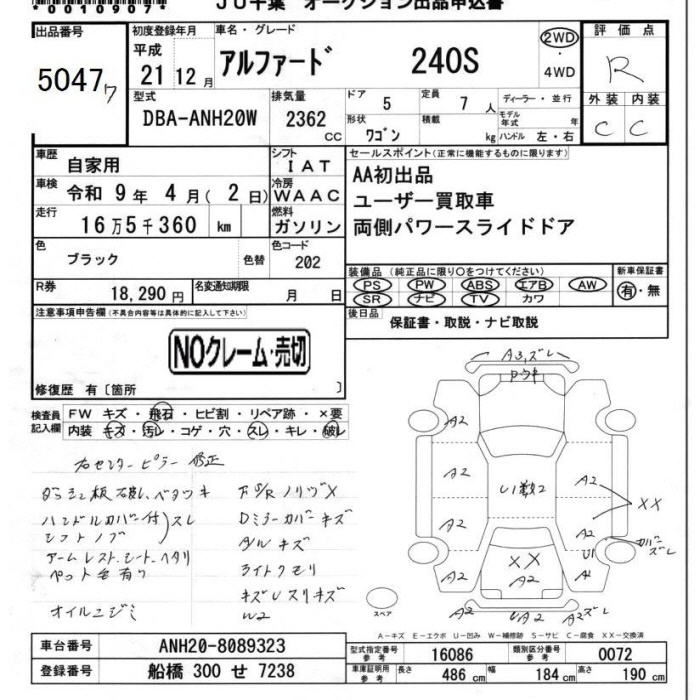 *0010907*
JU千葉 オークション出品申込書
出品番号
5047ワ
初度登録年月
平成
21 12 月
車名・グレード
アルファード 240S
2WD
・
4WD
評価点
R
外装 内装
C C
型式
DBA-ANH20W
排気量
2362
CC
ドア
5
定員
7 人
ディーラー・並行
形状
ワゴン
積載
kg
モデル年式 年
ハンドル 左・右
車歴
自家用
シフト
IAT
車検
令和 9年 4月( 2日)
冷房
WAAC
走行
16万5千360 km
燃料
ガソリン
色
ブラック
色替
色コード
202
R券
18,290円
名変通知期限
月 日
セールスポイント(正常に機能するものに限ります)
AA初出品
ユーザー買取車
両側パワースライドドア
装備品(純正品に限り○をつけてください)
PS PW ABS エアB AW
SR ナビ TV カワ
新車保証書
有・無
後日品
保証書・取説・ナビ取説
注意事項申告欄(不具合内容等は具体的に記入して下さい)
NOクレーム・売切
修復歴 有〔箇所 〕
検査員記入欄
FW キズ・飛石・ヒビ割・リペア跡・×要
内装 キズ・汚レ・コゲ・穴・スレ・キレ・破レ
右センターピラー修正
ダッシュ板破レ、ベタツキ
ハンドルカバー付)スレ
シフトノブ
アームレスト、シート、ヘタリ
ペット毛有り
オイルニジミ
Dミラーカバーキズ
ライトクモリ
W2
A3,スレ
A2
A2
A2
A2
A2
A2
U1
XX
カバースレ
U1数2
XX
A2
A2
UA2
A2スレ
スペア
A-キズ E-エクボ U-凹み W-補修跡 S-サビ C-腐食 XX-交換済
車台番号
ANH20-8089323
登録番号
船橋 300 せ 7238
型式指定番号
参考
16086
類別区分番号
参考
0072
車庫証明用
参考
長さ
486 cm
幅
184 cm
高さ
190 cm